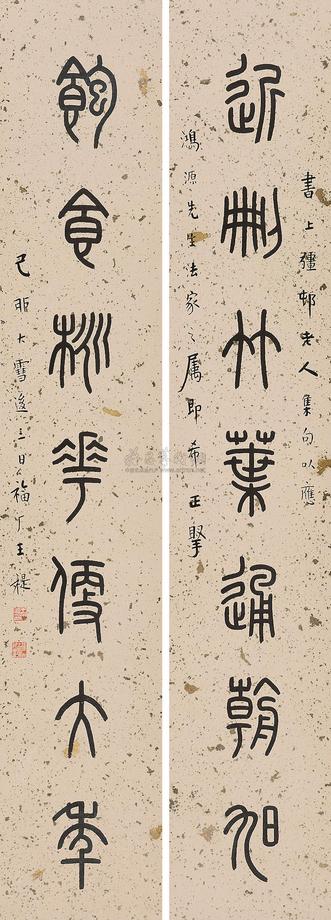 近刪竹葉通朝旭
書上彊邨老人集句以應
鴻源先生法家之屬即希正
飽食桃華便大年
己卯大雪後三日福厂王禔